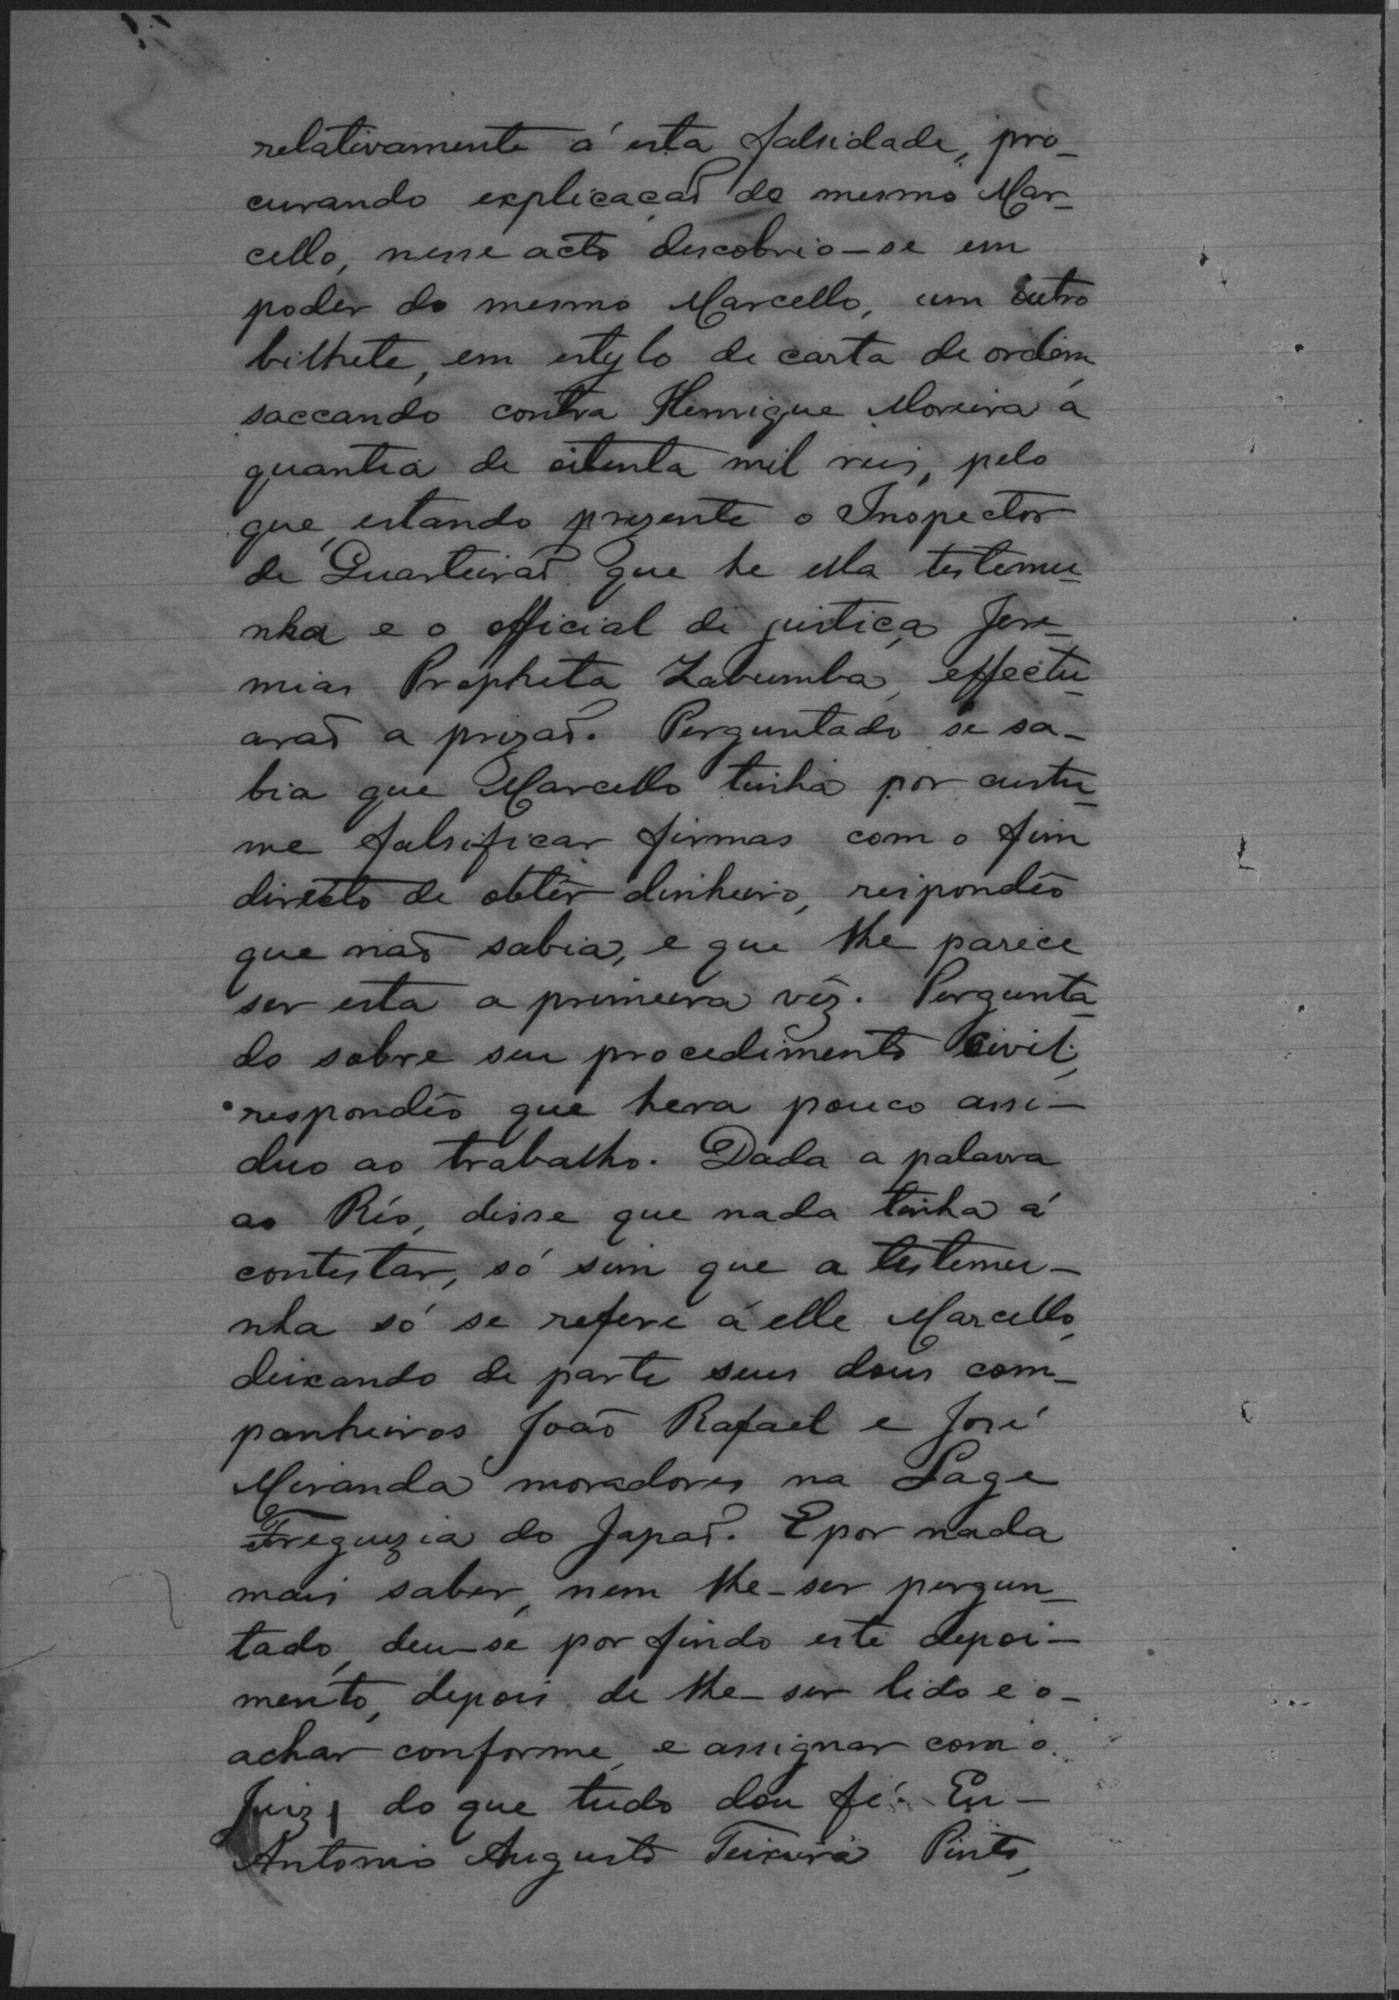 relativamente á esta falsidade, pro-
curando explicacaõ do mesmo Mar-
cello, nesse acto descobrio-se em
poder do mesmo Marcello, um outro
bilhete, em estylo de carta de ordem
saccando contra Henrique Moreira a
quantia de oitenta mil reis, pelo
que, estando prezente o Inspector
de Quarteiraõ que he ella testemu-
nha e o official de justiça Jere-
mias Propheta Zabumba, effectu-
araõ a prizaõ. Perguntado se sa-
bia que Marcello tinha por custu-
me falsificar firmas com o fim
directo de obtêr dinheiro, respondêo
que naõ sabia, e que lhe parece
ser esta a primeira vêz. Pergunta-
do sobre seu procedimento Civil,
respondêo que hera pouco assi-
duo ao trabalho. Dada a palavra
ao Réo, disse que nada tinha á
contestar, só sim que a testemu-
nha só se refere á elle Marcello,
deixando de parte seus dous com-
panheiros João Rafael e José
Miranda moradores na Lage
Freguezia do Japaõ. E por nada
mais saber, nem lhe-ser pergun-
tado, deu-se por findo este depoi-
mento, depois de lhe-ser lido e o-
achar conforme, e assignar com o
Juiz, do que tudo dou fé. Eu-
Antonio Augusto Teixeira Pinto,